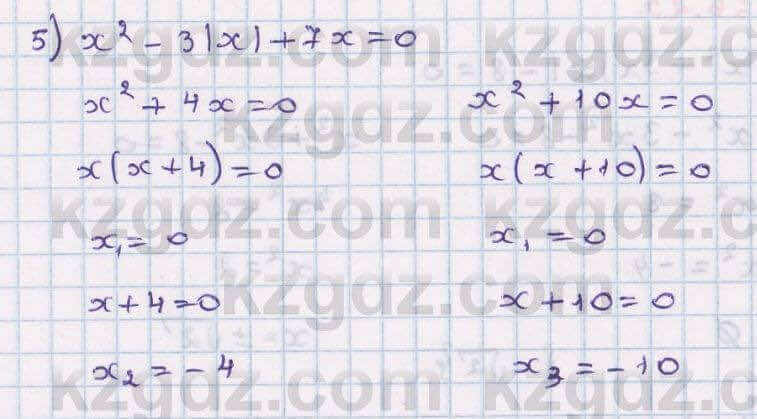 5) x² - 3|x| + 7x = 0
x² + 4x = 0
x(x + 4) = 0
x₁ = 0
x + 4 = 0
x₂ = - 4
x² + 10x = 0
x(x + 10) = 0
x₁ = 0
x + 10 = 0
x₃ = - 10
kzgdz.com
kzgdz.com
kzgdz.com
kzgdz.com
kzgdz.com